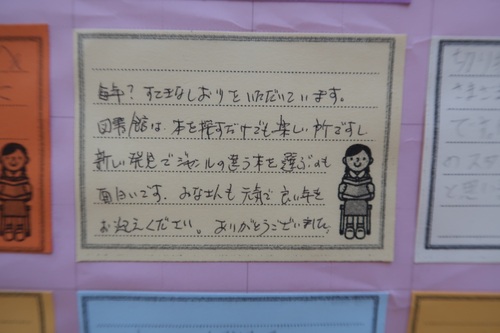 毎年?すてきなしおりをいただいています。
図書館は、本を探すだけでも楽しい所ですし
新しい発見でジャンルの違う本を選ぶのも
面白いです。みなさんも元気で良い年を
お迎えください。ありがとうございました。
切り